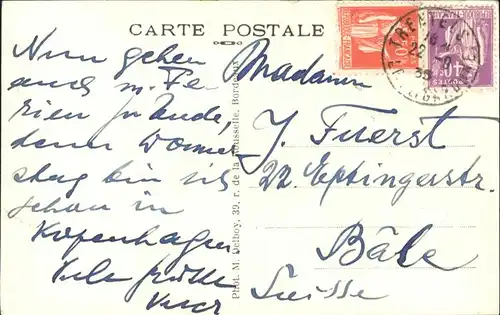 CARTE POSTALE
Nun gehen
auch m. Fe-
rien zu Ende,
denn Donners
tag bin ich
schon in
Kopenhagen
Viele Grüße
Madame
J. Fuerst
22. Eptingerstr.
Bâle
Suisse
Phot. M. Delboy, 39, r. de la Rousselle, Bordeaux